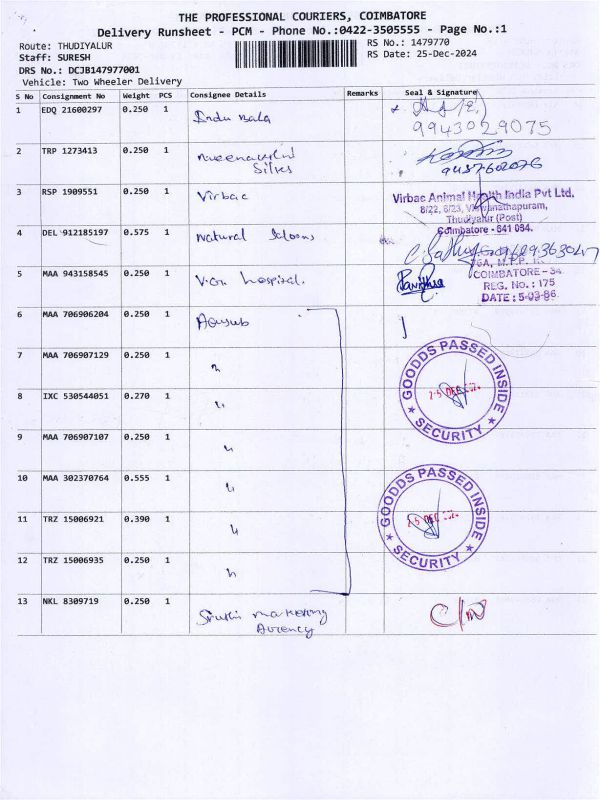 THE PROFESSIONAL COURIERS, COIMBATORE
Delivery Runsheet - PCM - Phone No.:0422-3505555 - Page No.:1
Route: THUDIYALUR
Staff: SURESH
DRS No.: DCJB147977001
Vehicle: Two Wheeler Delivery
RS No.: 1479770
RS Date: 25-Dec-2024
S No Consignment No Weight PCS Consignee Details Remarks Seal & Signature
1 EDQ 21600297 0.250 1 Indu Bala
9943029075
2 TRP 1273413 0.250 1
Silks
9487602076
3 RSP 1909551 0.250 1 Virbac
Virbac Animal Health India Pvt Ltd.
8/22, 6/23, Viswanathapuram,
Thudiyalur (Post)
Coimbatore - 641 034.
4 DEL 912185197 0.575 1 Natural Saloons
5 MAA 943158545 0.250 1 V.G.M hospital.
COIMBATORE - 34.
REG. No.: 175
DATE: 5-03-86
6 MAA 706906204 0.250 1
7 MAA 706907129 0.250 1 "
8 IXC 530544051 0.270 1 "
GOODDS PASSED INSIDE
25 DEC 2024
SECURITY
9 MAA 706907107 0.250 1 "
10 MAA 302370764 0.555 1 "
11 TRZ 15006921 0.390 1 "
GOODDS PASSED INSIDE
25 DEC 2024
SECURITY
12 TRZ 15006935 0.250 1 "
13 NKL 8309719 0.250 1 marketing
Agency